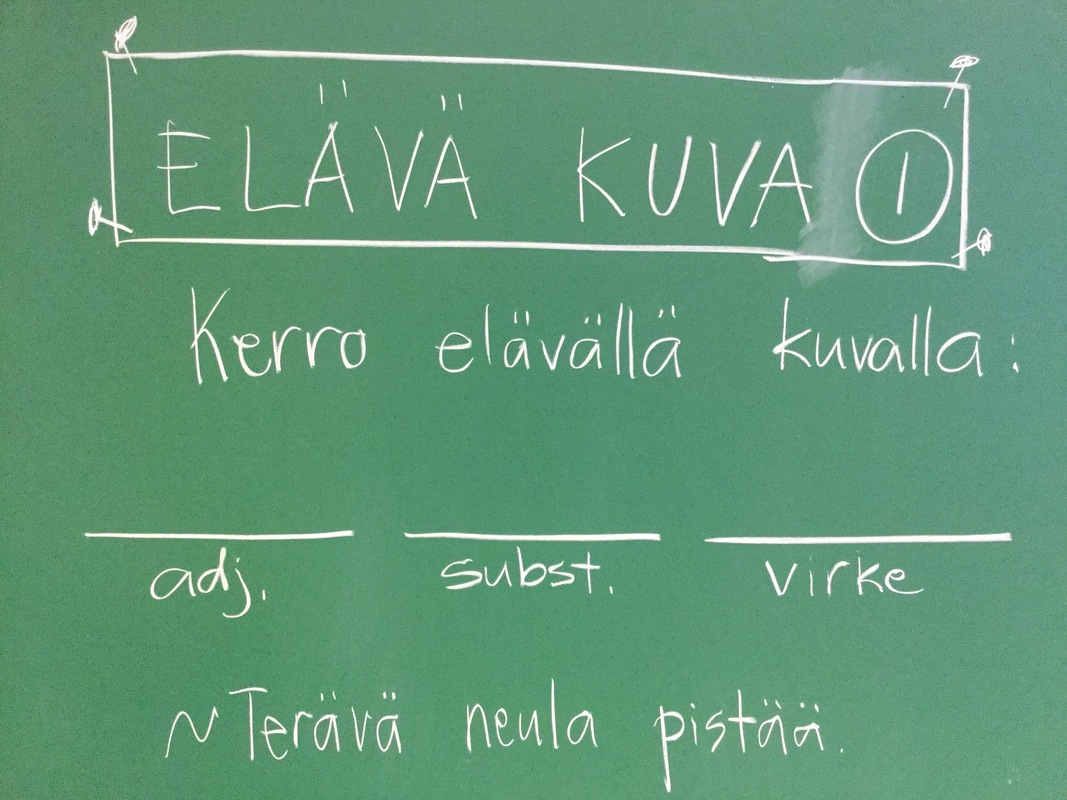 ELÄVÄ KUVA 1
Kerro elävällä kuvalla:
adj. subst. virke
~ Terävä neula pistää.